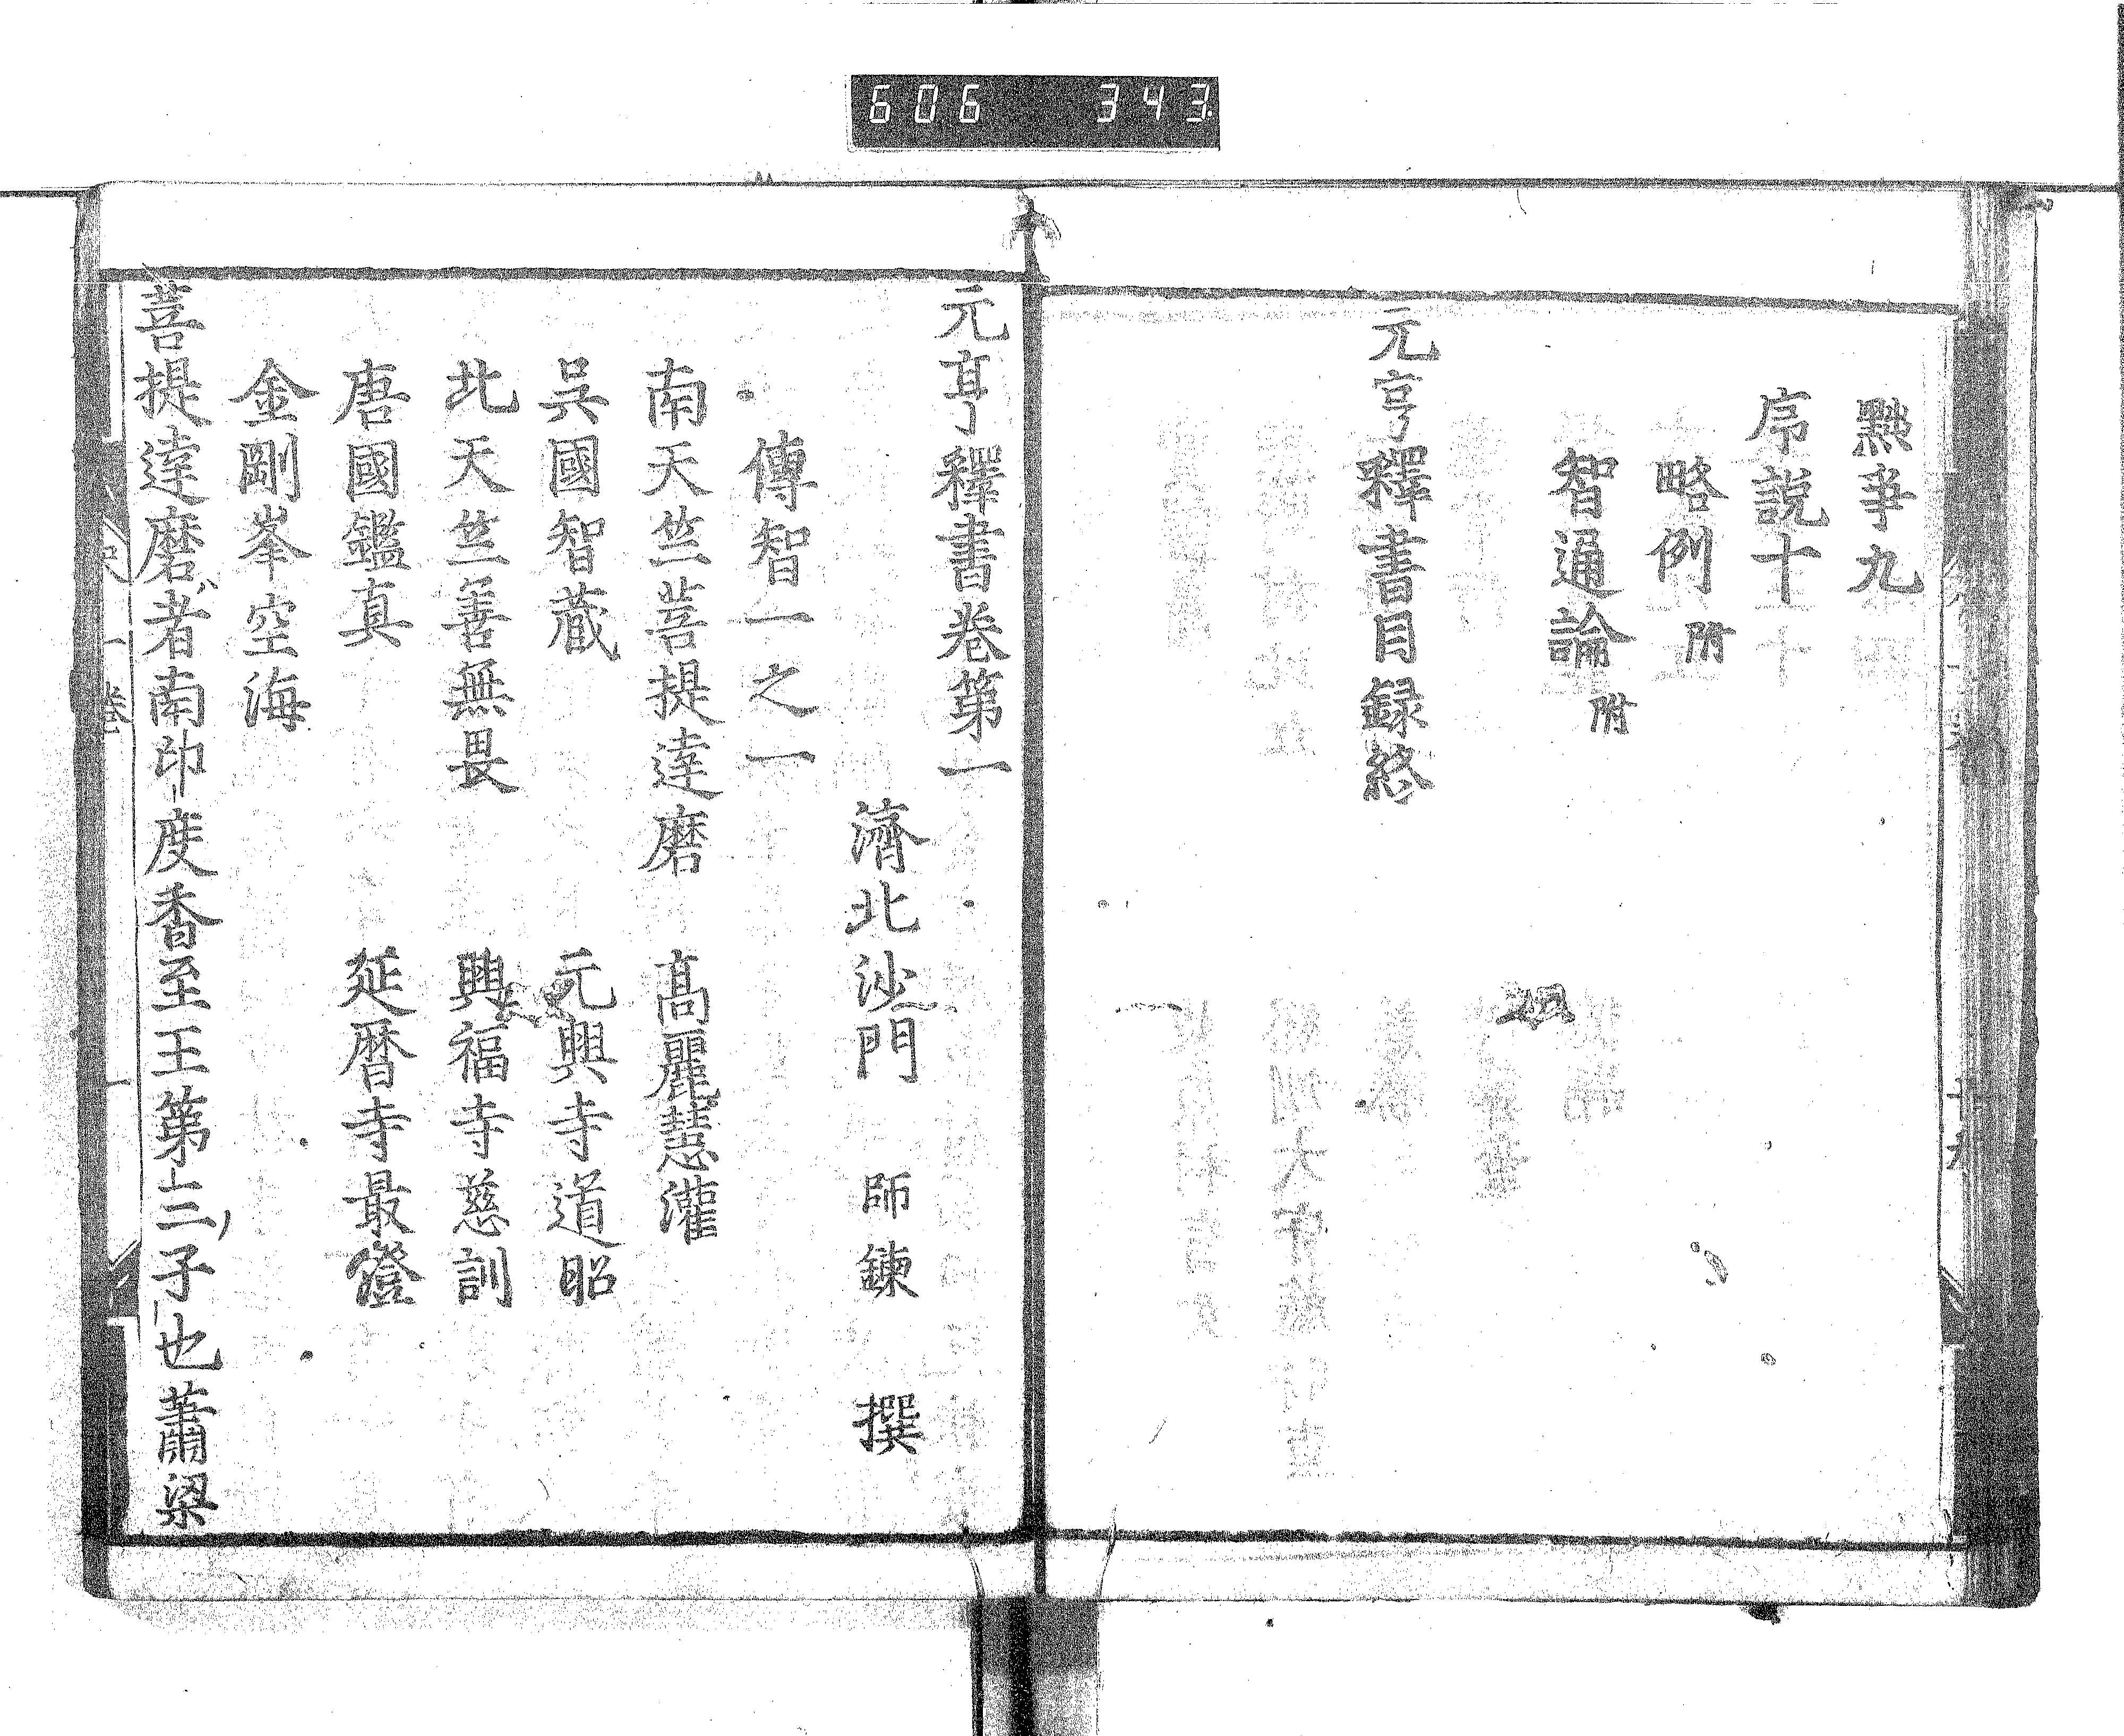 606 343
黜爭九
序說十
略例附
智通論附
元亨釋書目録終
元亨釋書卷第一
濟北沙門 師鍊 撰
傳智一之一
南天竺菩提達磨 高麗慧灌
吳國智藏 元興寺道昭
北天竺善無畏 興福寺慈訓
唐國鑑真 延曆寺最澄
金剛峯空海
菩提達磨者南印度香至王第三子也蕭梁